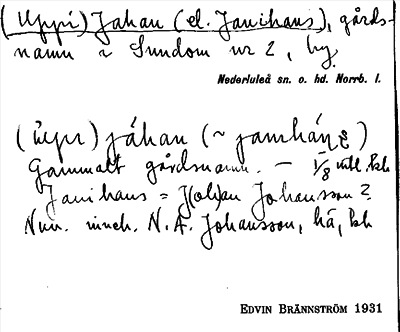 (Uppi) Jahan (el. Janihans), gårds-
namn i Sundom nr 2, by.
Nederluleå sn. o. hd. Norrb. l.
(üpı) jáhan (~ jamháṇẹ)
Gammalt gårdsnamn. — 1/8 mtl. kb
Janihans = J(oh)an Johansson?
Nuv. inneh. N. A. Johansson, hä, kb
EDVIN BRÄNNSTRÖM 1931